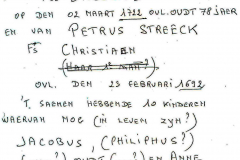 OP DEN 02 MAART 1722 OVL. OUDT 78 JAER
EN VAN PETRUS STREECK
FS CHRISTIAEN
(HAAR 1E MAN?)
OVL. DEN 23 FEBRUARI 1692
'T SAEMEN HEBBENDE 10 KINDEREN
WAERVAN MOG (IN LEVEN ZYN?)
JACOBUS, (PHILIPHUS?)
EN ANNE